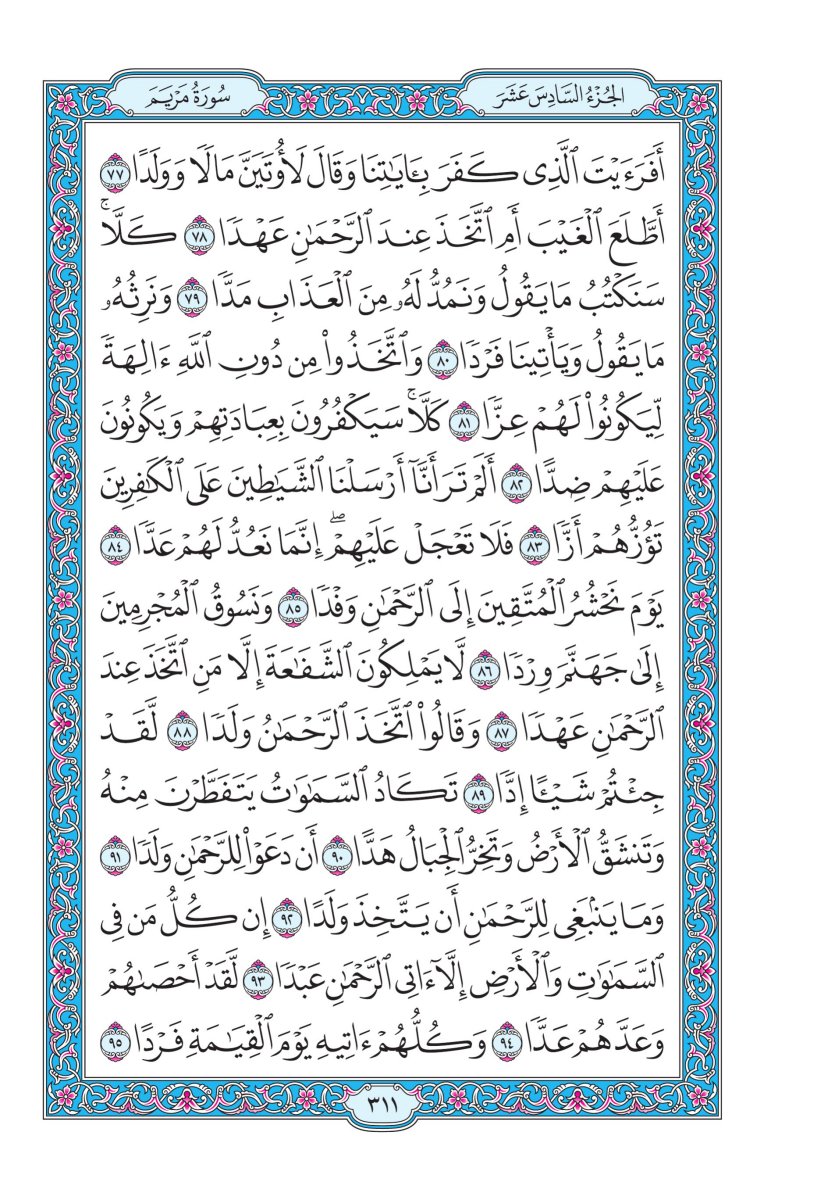 الجُزْءُ السَّادِسَ عَشَرَ
سُورَةُ مَرْيَمَ
أَفَرَءَيْتَ ٱلَّذِى كَفَرَ بِـَٔايَـٰتِنَا وَقَالَ لَأُوتَيَنَّ مَالًا وَوَلَدًا ٧٧
أَطَّلَعَ ٱلْغَيْبَ أَمِ ٱتَّخَذَ عِندَ ٱلرَّحْمَـٰنِ عَهْدًا ٧٨ كَلَّاۚ
سَنَكْتُبُ مَا يَقُولُ وَنَمُدُّ لَهُۥ مِنَ ٱلْعَذَابِ مَدًّا ٧٩ وَنَرِثُهُۥ
مَا يَقُولُ وَيَأْتِينَا فَرْدًا ٨٠ وَٱتَّخَذُوا۟ مِن دُونِ ٱللَّهِ ءَالِهَةً
لِّيَكُونُوا۟ لَهُمْ عِزًّا ٨١ كَلَّاۚ سَيَكْفُرُونَ بِعِبَادَتِهِمْ وَيَكُونُونَ
عَلَيْهِمْ ضِدًّا ٨٢ أَلَمْ تَرَ أَنَّآ أَرْسَلْنَا ٱلشَّيَـٰطِينَ عَلَى ٱلْكَـٰفِرِينَ
تَؤُزُّهُمْ أَزًّا ٨٣ فَلَا تَعْجَلْ عَلَيْهِمْۖ إِنَّمَا نَعُدُّ لَهُمْ عَدًّا ٨٤
يَوْمَ نَحْشُرُ ٱلْمُتَّقِينَ إِلَى ٱلرَّحْمَـٰنِ وَفْدًا ٨٥ وَنَسُوقُ ٱلْمُجْرِمِينَ
إِلَىٰ جَهَنَّمَ وِرْدًا ٨٦ لَّا يَمْلِكُونَ ٱلشَّفَـٰعَةَ إِلَّا مَنِ ٱتَّخَذَ عِندَ
ٱلرَّحْمَـٰنِ عَهْدًا ٨٧ وَقَالُوا۟ ٱتَّخَذَ ٱلرَّحْمَـٰنُ وَلَدًا ٨٨ لَّقَدْ
جِئْتُمْ شَيْـًٔا إِدًّا ٨٩ تَكَادُ ٱلسَّمَـٰوَٰتُ يَتَفَطَّرْنَ مِنْهُ
وَتَنشَقُّ ٱلْأَرْضُ وَتَخِرُّ ٱلْجِبَالُ هَدًّا ٩٠ أَن دَعَوْا۟ لِلرَّحْمَـٰنِ وَلَدًا ٩١
وَمَا يَنۢبَغِى لِلرَّحْمَـٰنِ أَن يَتَّخِذَ وَلَدًا ٩٢ إِن كُلُّ مَن فِى
ٱلسَّمَـٰوَٰتِ وَٱلْأَرْضِ إِلَّآ ءَاتِى ٱلرَّحْمَـٰنِ عَبْدًا ٩٣ لَّقَدْ أَحْصَىٰهُمْ
وَعَدَّهُمْ عَدًّا ٩٤ وَكُلُّهُمْ ءَاتِيهِ يَوْمَ ٱلْقِيَـٰمَةِ فَرْدًا ٩٥
٣١١